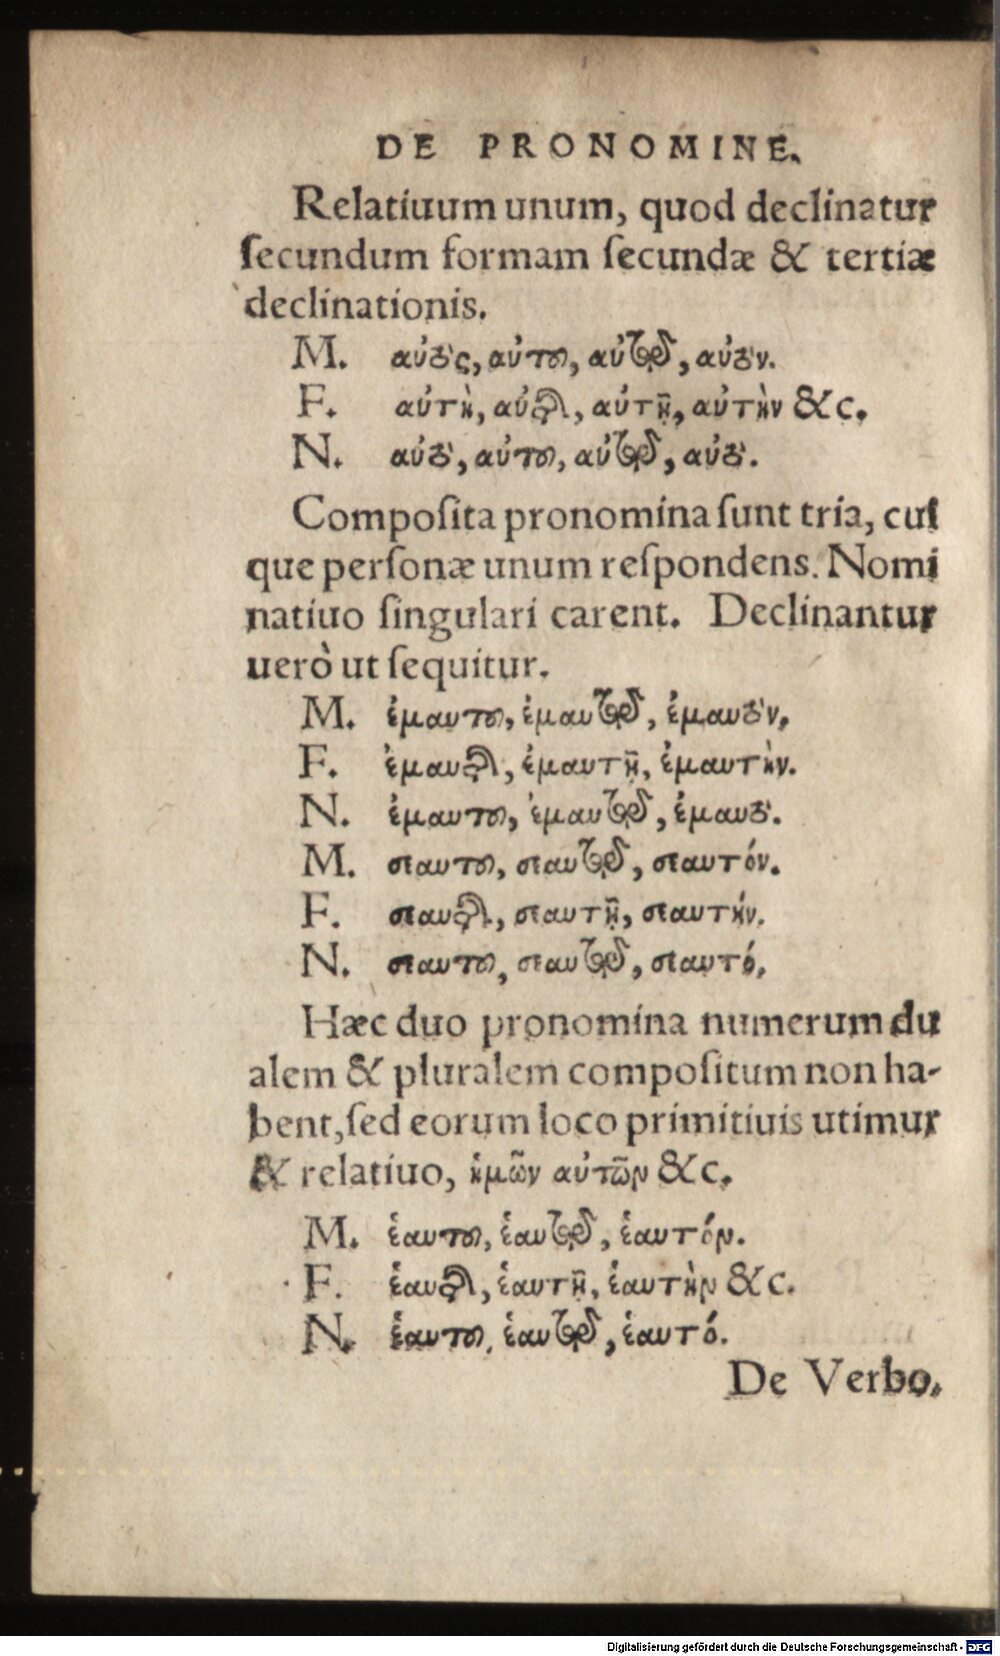 DE PRONOMINE.
Relatiuum unum, quod declinatur
ſecundum formam ſecundæ & tertiæ
declinationis.
M. αὐτὸς, αὐτοῦ, αὐτῷ, αὐτὸν.
F. αὐτὴ, αὐτῆς, αὐτῇ, αὐτὴν &c.
N. αὐτὸ, αὐτοῦ, αὐτῷ, αὐτὸ.
Compoſita pronomina ſunt tria, cui
que perſonæ unum reſpondens. Nomi
natiuo ſingulari carent. Declinantur
uerò ut ſequitur.
M. ἐμαυτοῦ, ἐμαυτῷ, ἐμαυτὸν.
F. ἐμαυτῆς, ἐμαυτῇ, ἐμαυτὴν.
N. ἐμαυτοῦ, ἐμαυτῷ, ἐμαυτὸ.
M. σεαυτοῦ, σεαυτῷ, σεαυτόν.
F. σεαυτῆς, σεαυτῇ, σεαυτήν.
N. σεαυτοῦ, σεαυτῷ, σεαυτό.
Hæc duo pronomina numerum du
alem & pluralem compoſitum non ha-
bent, ſed eorum loco primitiuis utimur
& relatiuo, ἡμῶν αὐτῶν &c.
M. ἑαυτοῦ, ἑαυτῷ, ἑαυτόν.
F. ἑαυτῆς, ἑαυτῇ, ἑαυτὴν &c.
N. ἑαυτοῦ, ἑαυτῷ, ἑαυτό.
De Verbo.
Digitalisierung gefördert durch die Deutsche Forschungsgemeinschaft - DFG